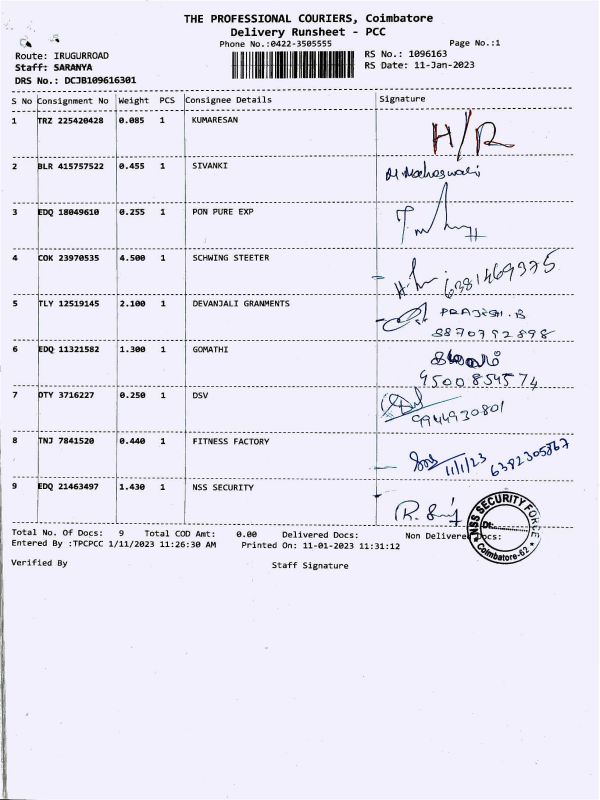 THE PROFESSIONAL COURIERS, Coimbatore
Delivery Runsheet - PCC
Phone No.:0422-3505555 Page No.:1
Route: IRUGURROAD RS No.: 1096163
Staff: SARANYA RS Date: 11-Jan-2023
DRS No.: DCJB109616301
S No Consignment No Weight PCS Consignee Details Signature
1 TRZ 225420428 0.085 1 KUMARESAN H/R
2 BLR 415757522 0.455 1 SIVANKI
3 EDQ 18049610 0.255 1 PON PURE EXP
4 COK 23970535 4.500 1 SCHWING STEETER 6381469375
5 TLY 12519145 2.100 1 DEVANJALI GRANMENTS PRAJESH.B
8870792898
6 EDQ 11321582 1.300 1 GOMATHI
9500854574
7 DTY 3716227 0.250 1 DSV
9944930801
8 TNJ 7841520 0.440 1 FITNESS FACTORY 11/1/23 6382305867
9 EDQ 21463497 1.430 1 NSS SECURITY
NSS SECURITY FORCE
Dt:
Coimbatore-62
Total No. Of Docs: 9 Total COD Amt: 0.00 Delivered Docs: Non Delivered Docs:
Entered By :TPCPCC 1/11/2023 11:26:30 AM Printed On: 11-01-2023 11:31:12
Verified By Staff Signature